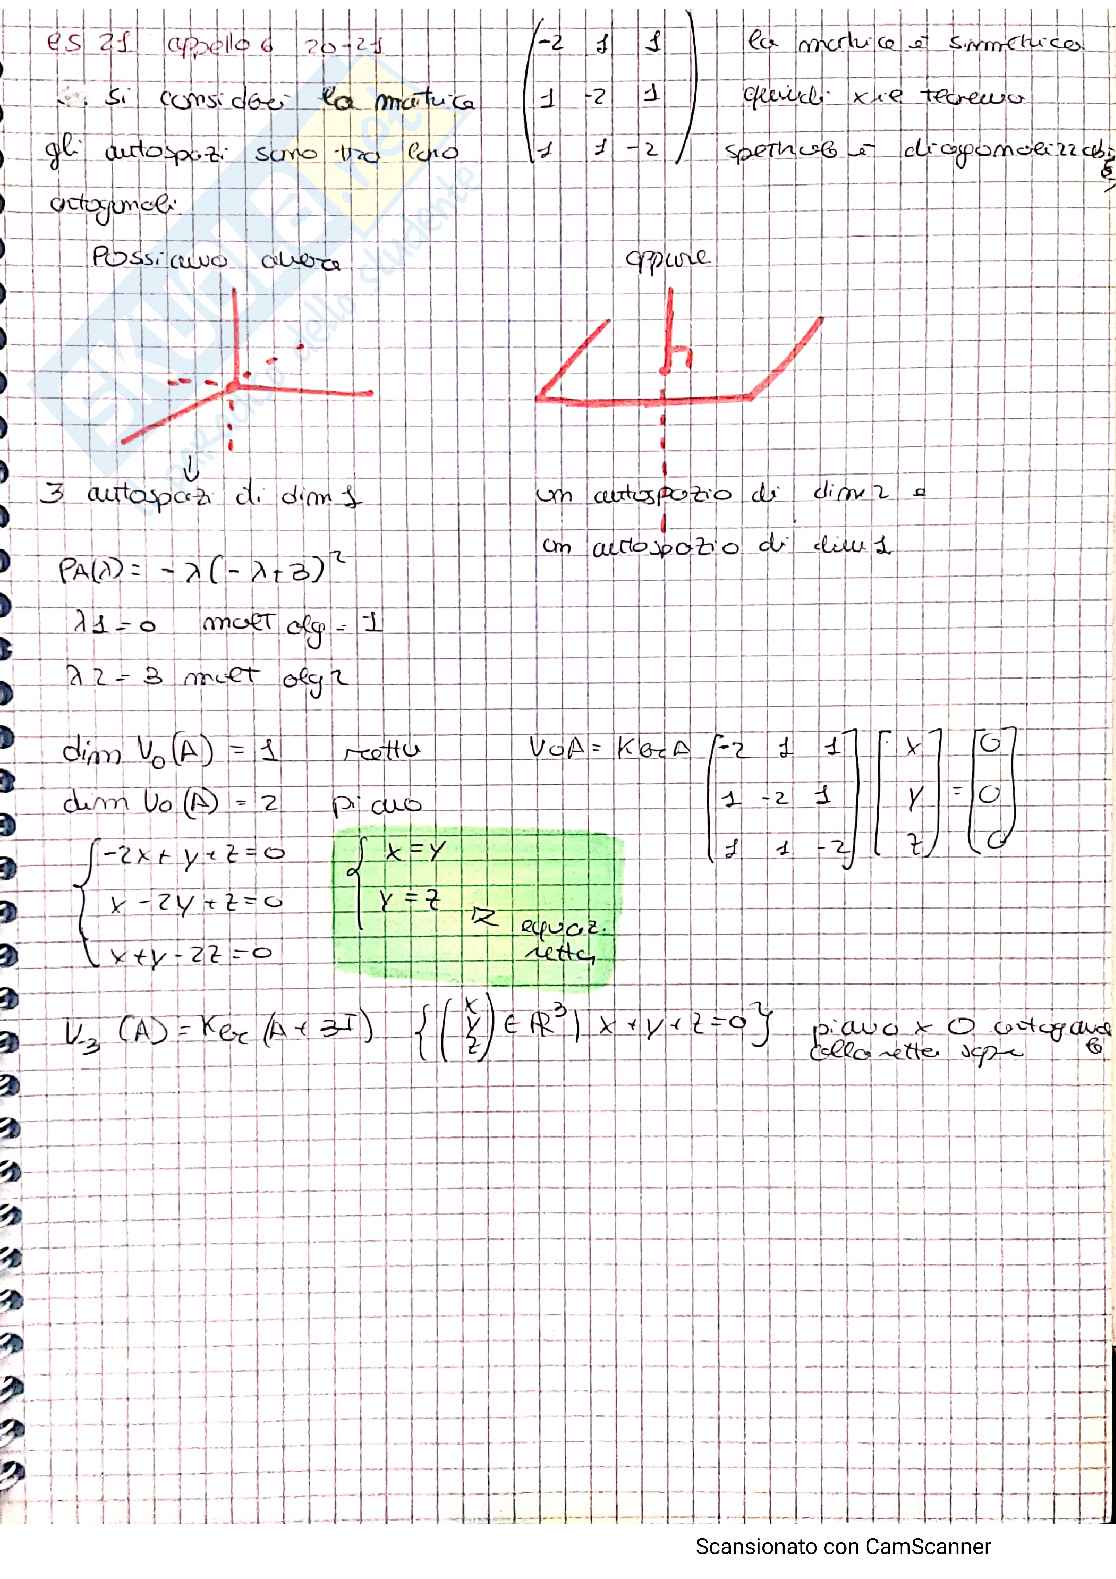 es 21 appello 6 20-21
si consideri la matrice
(-2 1 1
1 -2 1
1 1 -2)
la matrice è simmetrica
quindi x il teorema
spettrale è diagonalizzabile
gli autospazi sono tra loro
ortogonali
Possiamo avere
oppure
3 autospazi di dim 1
un autospazio di dim 2 e
un autospazio di dim 1
PA(λ) = -λ(-λ+3)²
λ1=0 molt alg = 1
λ2=3 molt alg 2
dim V₀(A) = 1 retta
dim V₀(A) = 2 piano
V0A = Ker A [-2 1 1 [x = [0
1 -2 1 y 0
1 1 -2] z] 0]
{-2x+y+z=0
x-2y+z=0
x+y-2z=0
{x=y
y=z
equaz.
retta
V₃(A) = Ker(A+3I) {(x y z) ∈ ℝ³ | x+y+z=0} piano x 0 ortogonale
alla retta sopra
Scansionato con CamScanner